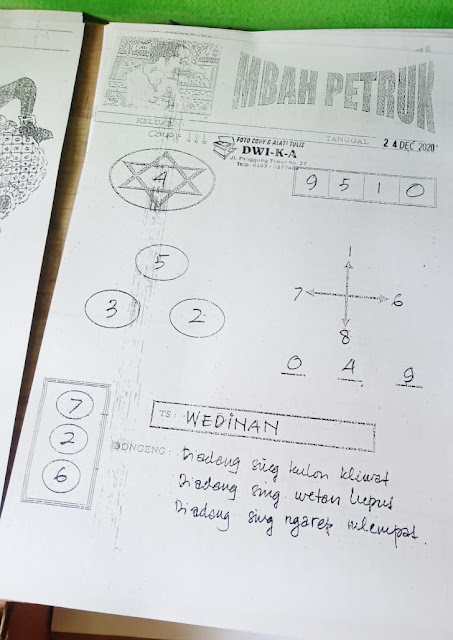 MBAH PETRUK
KELUAR
TANGGAL 24 DEC 2020
FOTO COPY & ALAT TULIS
DWI-K-A
4
9 5 1 0
5
3 2
1
7 6
8
0 4 9
7
2
6
TS: WEDINAN
DONGENG: Diadang sing kulon kliwat
Diadang sing wetan luput
Diadang sing ngarep mlempat.